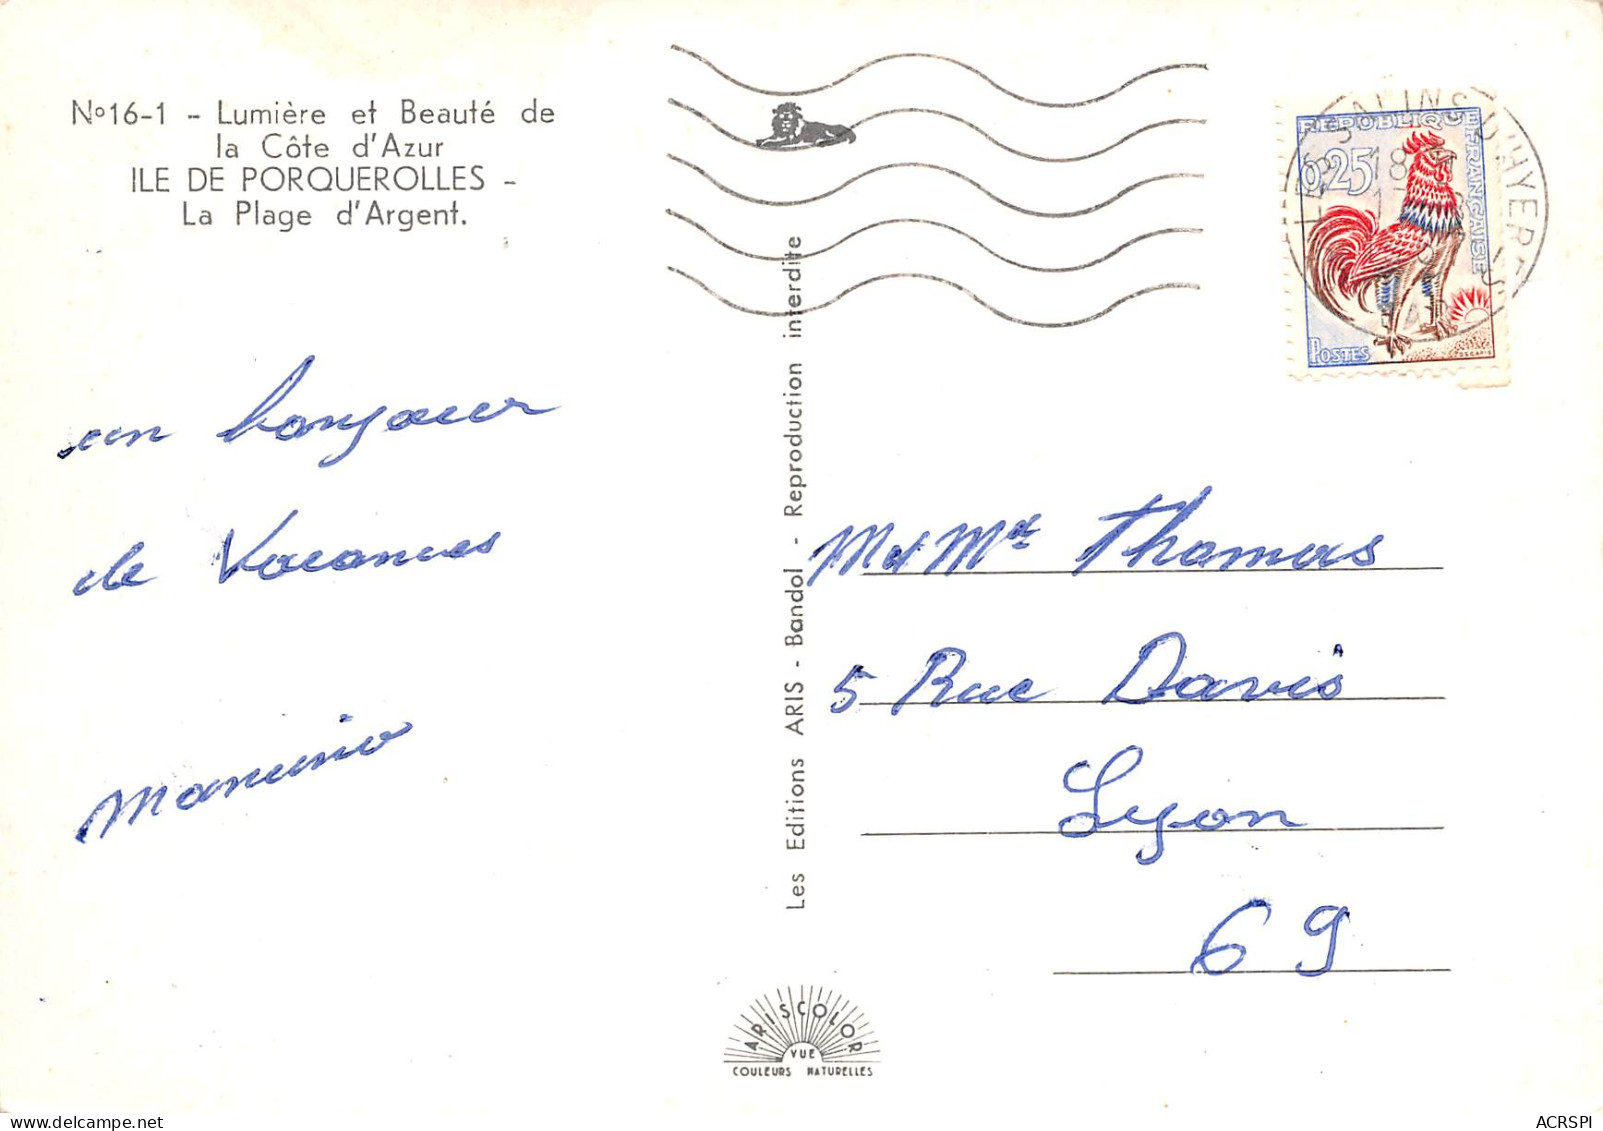 N°16-1 - Lumière et Beauté de
la Côte d'Azur
ILE DE PORQUEROLLES -
La Plage d'Argent.
un bonjour
de Vacances
Les Editions ARIS - Bandol - Reproduction interdite
REPUBLIQUE FRANÇAISE
0,25
POSTES
DECARIS
LES SALINS D'HYERES
18
VAR
M et Me Thomas
5 Rue Davis
Lyon
69
ARISCOLOR
VUE
COULEURS NATURELLES
ACRSPI